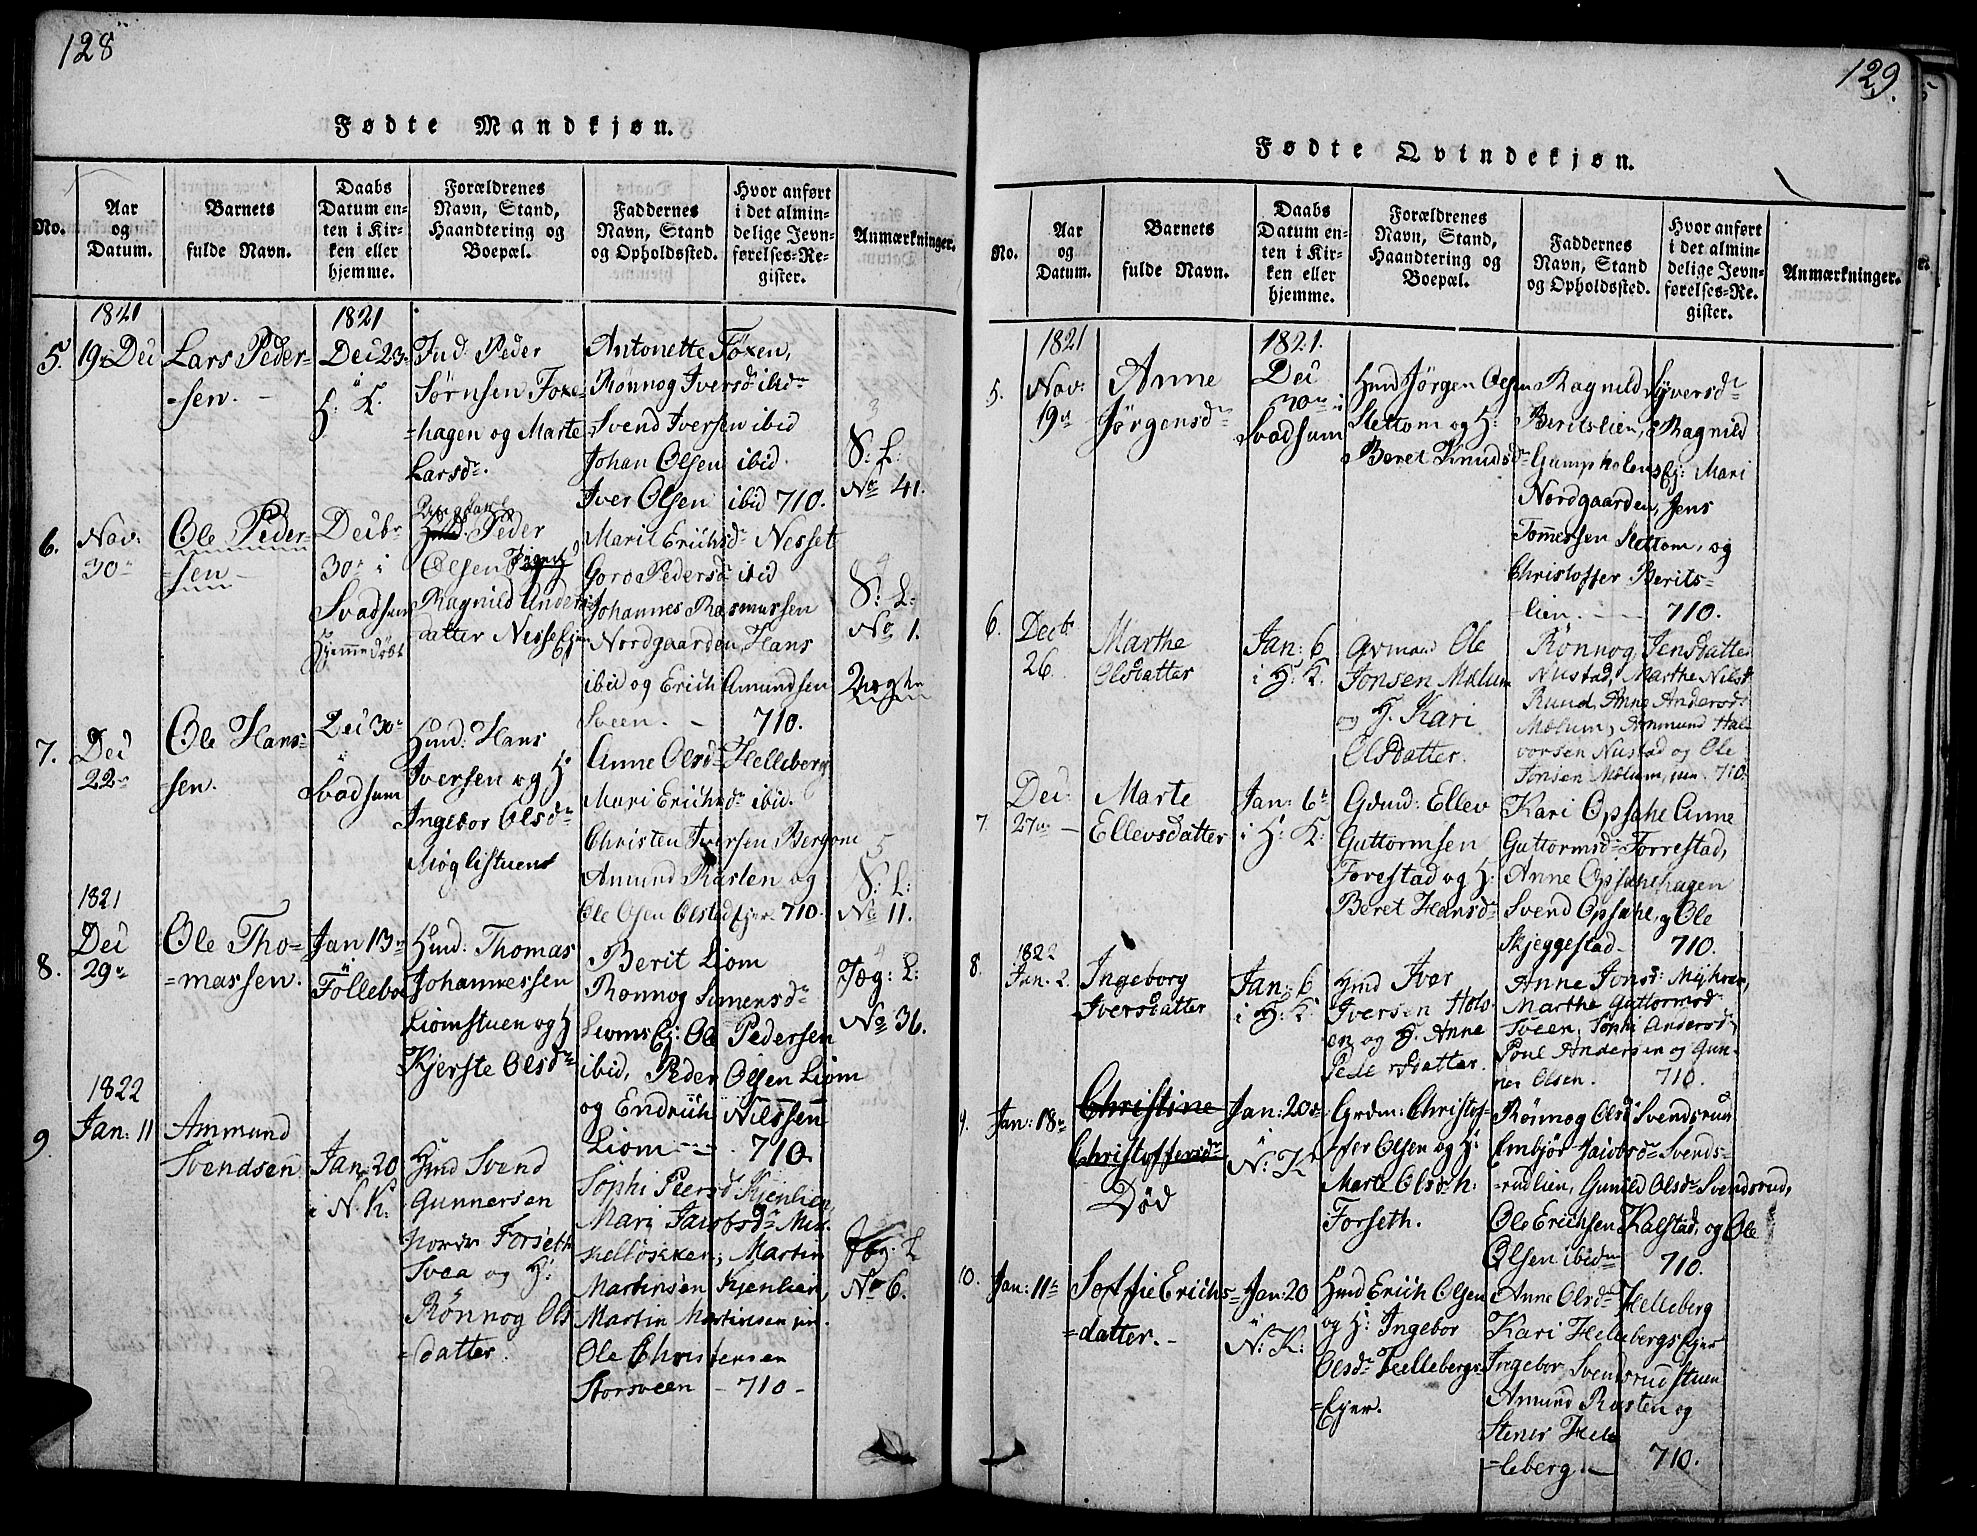 128
Fødte Mandkjøn.
No.
Aar og Datum.
Barnets fulde Navn.
Daabs Datum enten i Kirken eller hjemme.
Forældrenes Navn, Stand, Haandtering og Boepæl.
Faddernes Navn, Stand og Opholdssted.
Hvor anført i det almindelige Jevnførelses-Register.
Anmærkninger.
1821
1821
5.
19 Dec
Lars Peder-
=sen. -
Dec 23
H: K.
Ind: Peder
Sørnsen Foxe-
=hagen og Marte
Larsd.
Antonette Föxen,
Rönnog Iversd ibid
Svend Iversen ibid
Johan Olsen ibid.
Iver Olsen ibid 710.
3
S: L:
No 41.
6.
Nov:
30
Ole Peder-
=sen -
Decbr
30 i
Svadsum
Hjemmedöbt
Ungkarl
Peder
Olsen
Ragnild Anders
datter Nesse Ejer
Marit Erichsd Nesset
Goroa Pedersd ibid
Johannes Rasmussen
Nordgaarden, Hans
ibid og Erich Amundsen
Sveen. - 710.
4
S: L:
No 1.
Uægte
7.
Dec
22
Ole Hans-
sen.
Dec 30
i
Svadsum
Hmd: Hans
Iversen og H
Ingebor Olsd
Møglistuen
Anne Olsd Helleberg
Mari Erichsd ibid.
Christen Iversen Bergum
Amund Rasten og
Ole Olsen Olstad Ejer. 710.
5
S: L:
No 11.
1821
8.
Dec
29
Ole Tho-
=massen.
Jan 13
i
Fölleboe
Hmd: Thomas
Johannessen
Liomstuen og H
Kjerste Olsd
Berit Liom
Rønnog Simensd
Lioms Ej: Ole Pedersen
ibid, Peder Olsen Liom
og Endrich Nilssen
Liom - - - 710.
4
Jæg: L:
No 36.
1822
9.
Jan: 11
Ammund
Svendsen
Jan: 20
i N. K:
Hmd Svend
Gunnersen
Forseth
Svea og H:
Rönnog Ols
=datter.
Sophi Peersd Kjenlien
Mari Jacobsd Mik-
kelløkken, Martin
Martinsen Kjenlien,
Martin Martinsen jun.
Ole Christensen
Storsveen - 710 -
No 6.
129.
Fødte Qvindekjøn.
No.
Aar og Datum.
Barnets fulde Navn.
Daabs Datum enten i Kirken eller hjemme.
Forældrenes Navn, Stand, Haandtering og Boepæl.
Faddernes Navn, Stand og Opholdssted.
Hvor anført i det almindelige Jevnførelses-Register.
Anmærkninger.
1821
1821.
5.
Nov:
19
Anne
Jørgensd
Dec
30 i
Svadsum
Hmd Jørgen Olsen
Slettom og H:
Beret Knudsd
Ragnild Syversd
Beritslien, Ragnild
Gumpholens Ej: Mari
Nordgaarden, Jens
Tommersen Slettom, og
Christoffer Berits-
-lien. - 710.
6.
Decbr
26.
Marthe
Olsdatter
Jan: 6
i H. K.
Ole
Jonsen Mælum
og H. Kari
Olsdatter.
Rønnog Jensdatter
Nustad, Marthe Nilsd
Ruud, Anne Andersd
Mælum, Ammund Hal-
vorsen Nustad og Ole
Jonsen Mælum, jun. 710.
7.
Dec
27 -
Marte
Ellevsdatter
Jan: 6
i H: K:
Grdmd: Ellev
Guttormsen
Forestad og H:
Beret Hansd
Kari Opsahe Anne
Guttormsd Forrestad,
Anne Opsahehagen
Svend Opsahe, og Ole
Skjeggestad - 710.
8.
1822
Jan. 2.
Ingeborg
Iversdatter
Jan: 6
i H. K.
Hmd Iver
Iversen Hols-
en og H. Anne
Pedersdatter.
Anne Jonsd:
Marthe Guttormsd
Sveen, Sophi Andersd
Poul Andersen og Gun-
ner Olsen. 710.
9.
Jan: 18
Christine
Christoffersd
Död
Jan: 20
i
N: K
Grdm: Christof-
fer Olsen og H:
Marte Olsd
Forseth.
Rönnog Olsd Svendsrud
Embjör Jacobsd Svends-
=rudlien, Gunild Olsd Svendsrud,
Ole Erichsen Kalstad, og Ole
Olsen ibid 710.
10.
Jan: 11
Soffie Erichs=
=datter. -
Jan: 20
i
N: K:
Hmd Erich Olsen
og H: Ingebor
Olsd Hellebergs
=Ejer.
Anne Olsd Helleberg
Kari Hellebergs Ejer
Ingebor Svendsrudstuen
Amund Rasten og
Stener Hel-
=leberg. - 710.